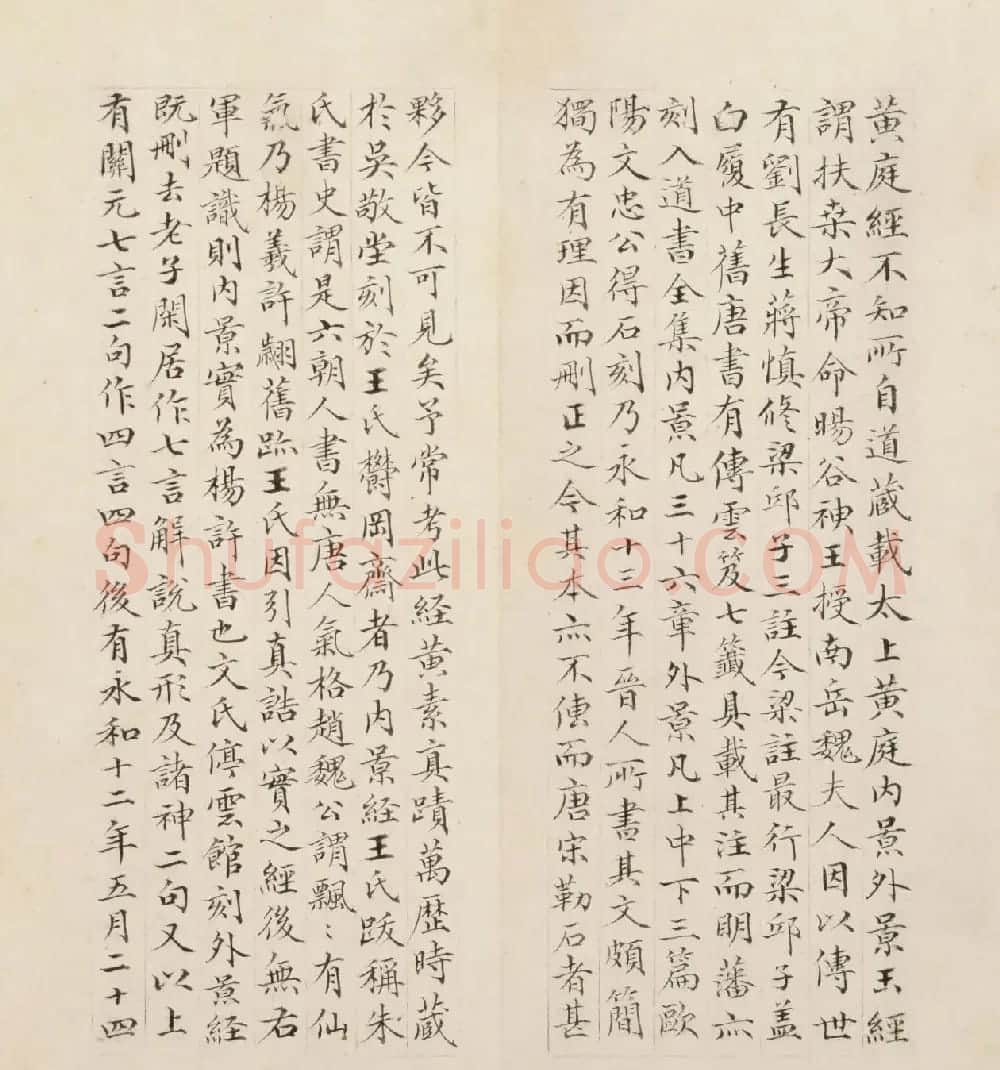 黃庭經不知所自道藏載太上黃庭內景外景玉經
謂扶桒大帝命暘谷神王授南岳魏夫人因以傳世
有劉長生蔣慎修梁邱子三註今梁註最行梁邱子盖
白履中舊唐書有傳雲笈七籤具載其注而明藩亦
刻入道書全集內景凡三十六章外景凡上中下三篇歐
陽文忠公得石刻乃永和十三年晉人所書其文頗簡
獨為有理因而刪正之今其本亦不傳而唐宋勒石者甚
夥今皆不可見矣予常考此經黃素真蹟萬歷時藏
於吳敬堂刻於王氏欝岡齋者乃內景経王氏跋稱朱
氏書史謂是六朝人書無唐人氣格趙魏公謂飄〻有仙
氣乃楊羲許翽舊跡王氏因引真誥以實之經後無右
軍題識則內景實為楊許書也文氏停雲館刻外景経
既刪去老子閑居作七言解說真形及諸神二句又以上
有關元七言二句作四言四句後有永和十二年五月二十四
Shufaziliao.COM